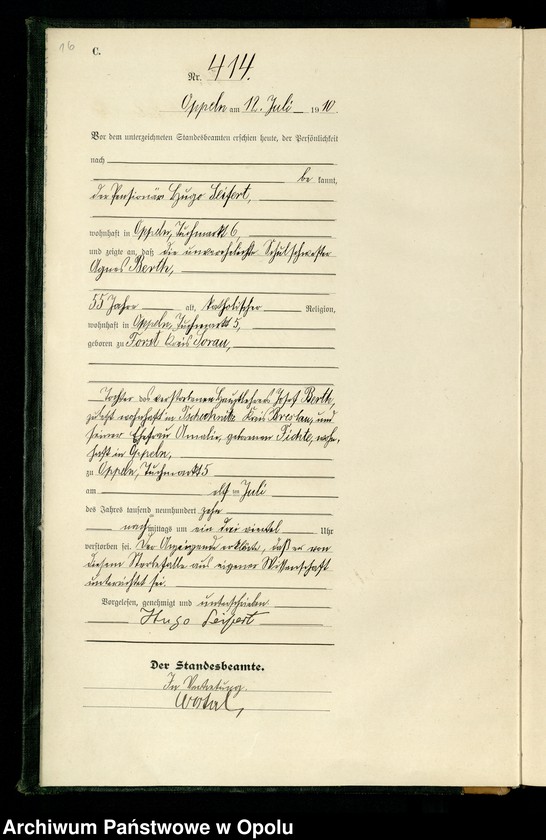 16
C.
Nr. 414.
Oppeln am 12. Juli 1910.
Vor dem unterzeichneten Standesbeamten erschien heute, der Persönlichkeit
nach
be kannt,
der Pensionär Hugo Seifert,
wohnhaft in Oppeln, Tuchmarkt 6,
und zeigte an, daß die unverehelichte Schulschwester
Agnes Berth,
55 Jahre alt, katholischer Religion,
wohnhaft in Oppeln, Tuchmarkt 5,
geboren zu Forst Kreis Sorau,
Tochter des verstorbenen Hauptlehrers Josef Berth,
zuletzt wohnhaft in Kreis Breslau, und
seiner Ehefrau Amalie, geborenen wohn-
haft in Oppeln,
zu Oppeln, Tuchmarkt 5
am elf ten Juli
des Jahres tausend neunhundert zehn
nachmittags um ein drei viertel Uhr
verstorben sei. Der Anzeigende erklärte, daß er von
diesem Sterbefalle aus eigener Wissenschaft
unterrichtet sei.
Vorgelesen, genehmigt und unterschrieben
Hugo Seifert
Der Standesbeamte.
In Vertretung.
Archiwum Państwowe w Opolu